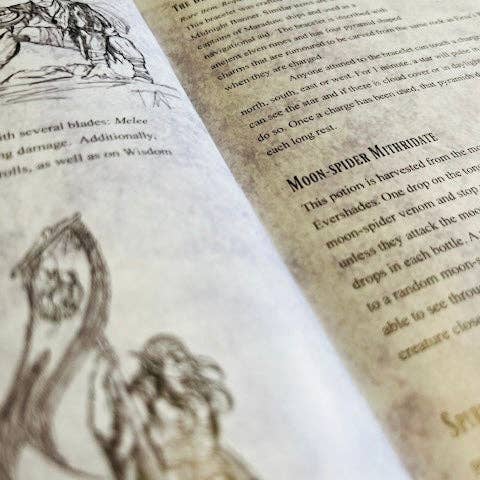 TA
ith several blades: Melee
ng damage. Additionally,
rolls, as well as on Wisdom
THE
Midnight
captains of
navigational aid. The bracelet is inscribed with
ancient elven runes and has four pyramid shaped
charms that are rumoured to be carved from
when they are charged.
Anyone attuned to the bracelet can touch a charge
north, south, east or west. For 1 minute, a star will pulse in
can see the star and if there is cloud cover or is daylight
do so. Once a charge has been used, that pyramid
each long rest.
MOON-SPIDER MITHRIDATE
This potion is harvested from the moo
Evershades. One drop on the ton
moon-spider venom and stop
unless they attack the moo
drops in each bottle. A
to a random moon-s
able to see throug
creature close
SPI